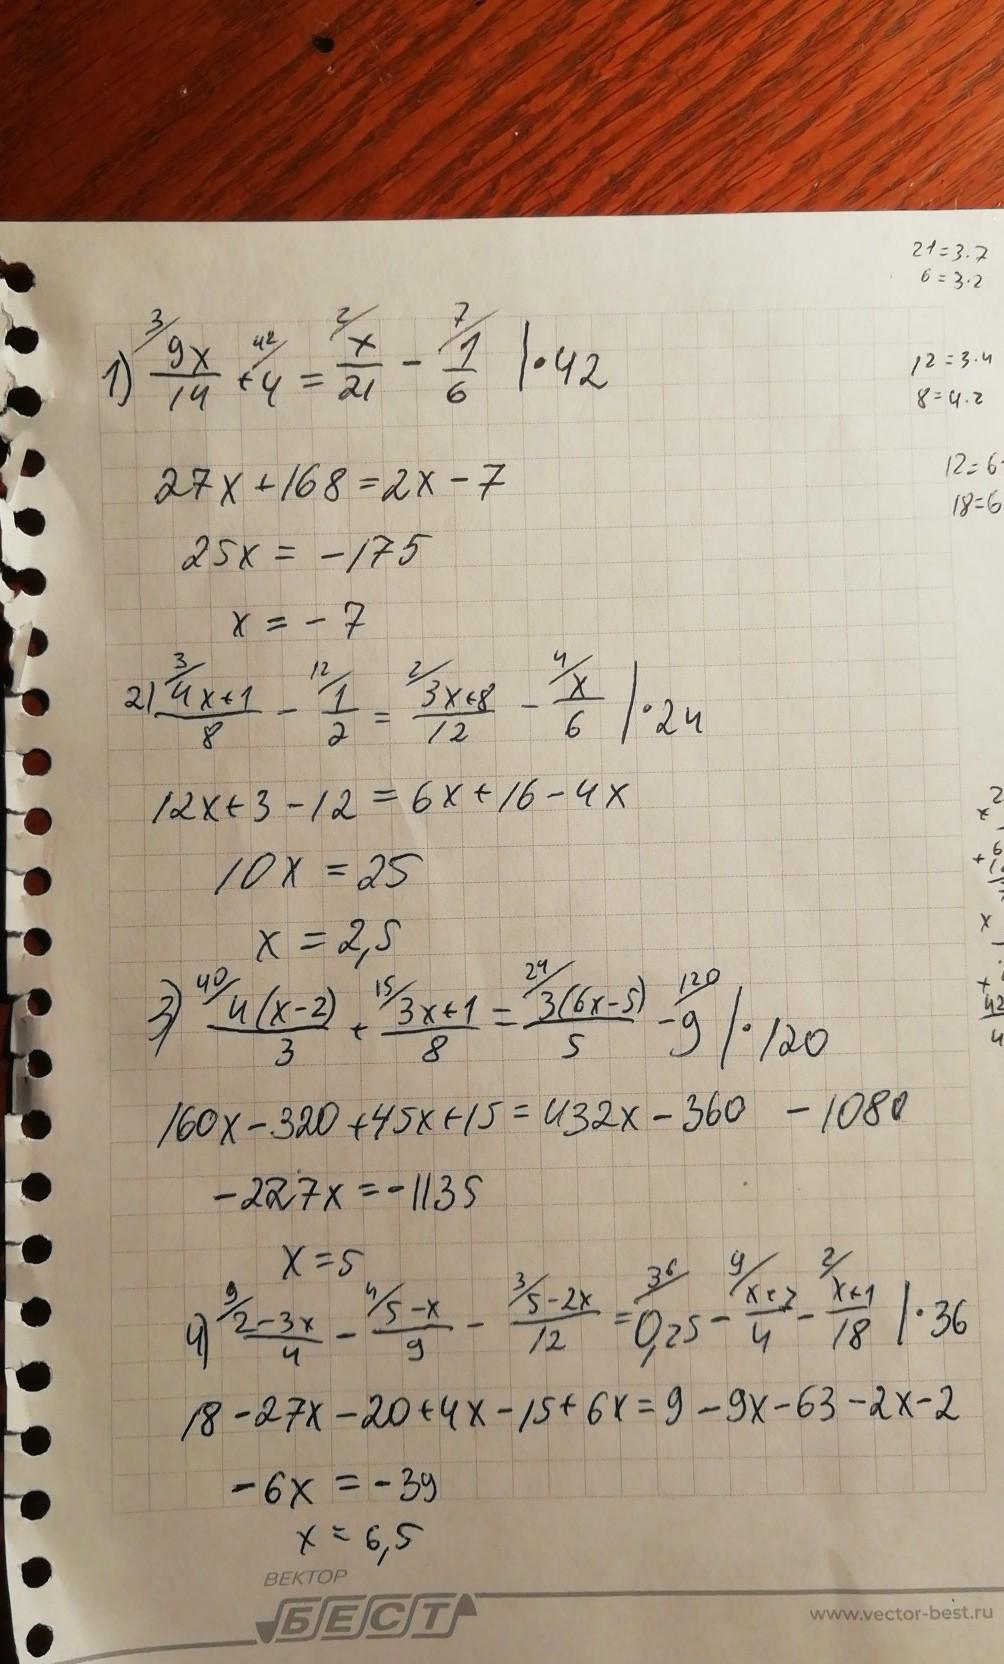 21=3·7
6=3·2
1) 3/ 9x/14 + 42/ 4 = 2/ x/21 - 7/ 1/6 |·42
12=3·4
8=4·2
27x+168=2x-7
12=6
18=6
25x = -175
x = -7
2) 3/ 4x+1/8 - 12/ 1/2 = 2/ 3x+8/12 - 4/ x/6 |·24
12x+3-12=6x+16-4x
10x = 25
x = 2,5
3) 40/ 4(x-2)/3 + 15/ 3x+1/8 = 24/ 3(6x-5)/5 - 120/ 9 |·120
160x-320+45x+15=432x-360 -1080
-227x=-1135
x=5
4) 9/ 2-3x/4 - 4/ 5-x/9 - 3/ 5-2x/12 = 36/ 0,25 - 9/ x+7/4 - 2/ x+1/18 |·36
18-27x-20+4x-15+6x=9-9x-63-2x-2
-6x = -39
x = 6,5
ВЕКТОР
БЕСТ
www.vector-best.ru